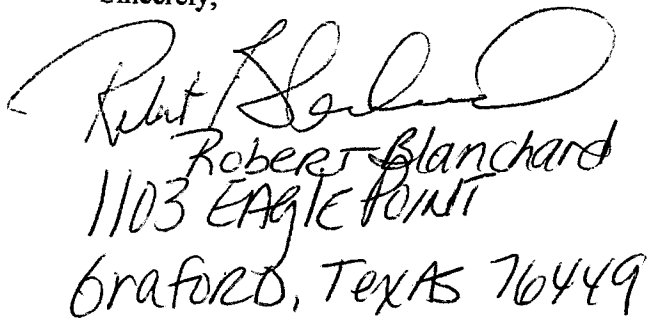 Sincerely,
Robert Blanchard
Robert Blanchard
1103 EAglE POINT
GrafoRD, TexAS 76449